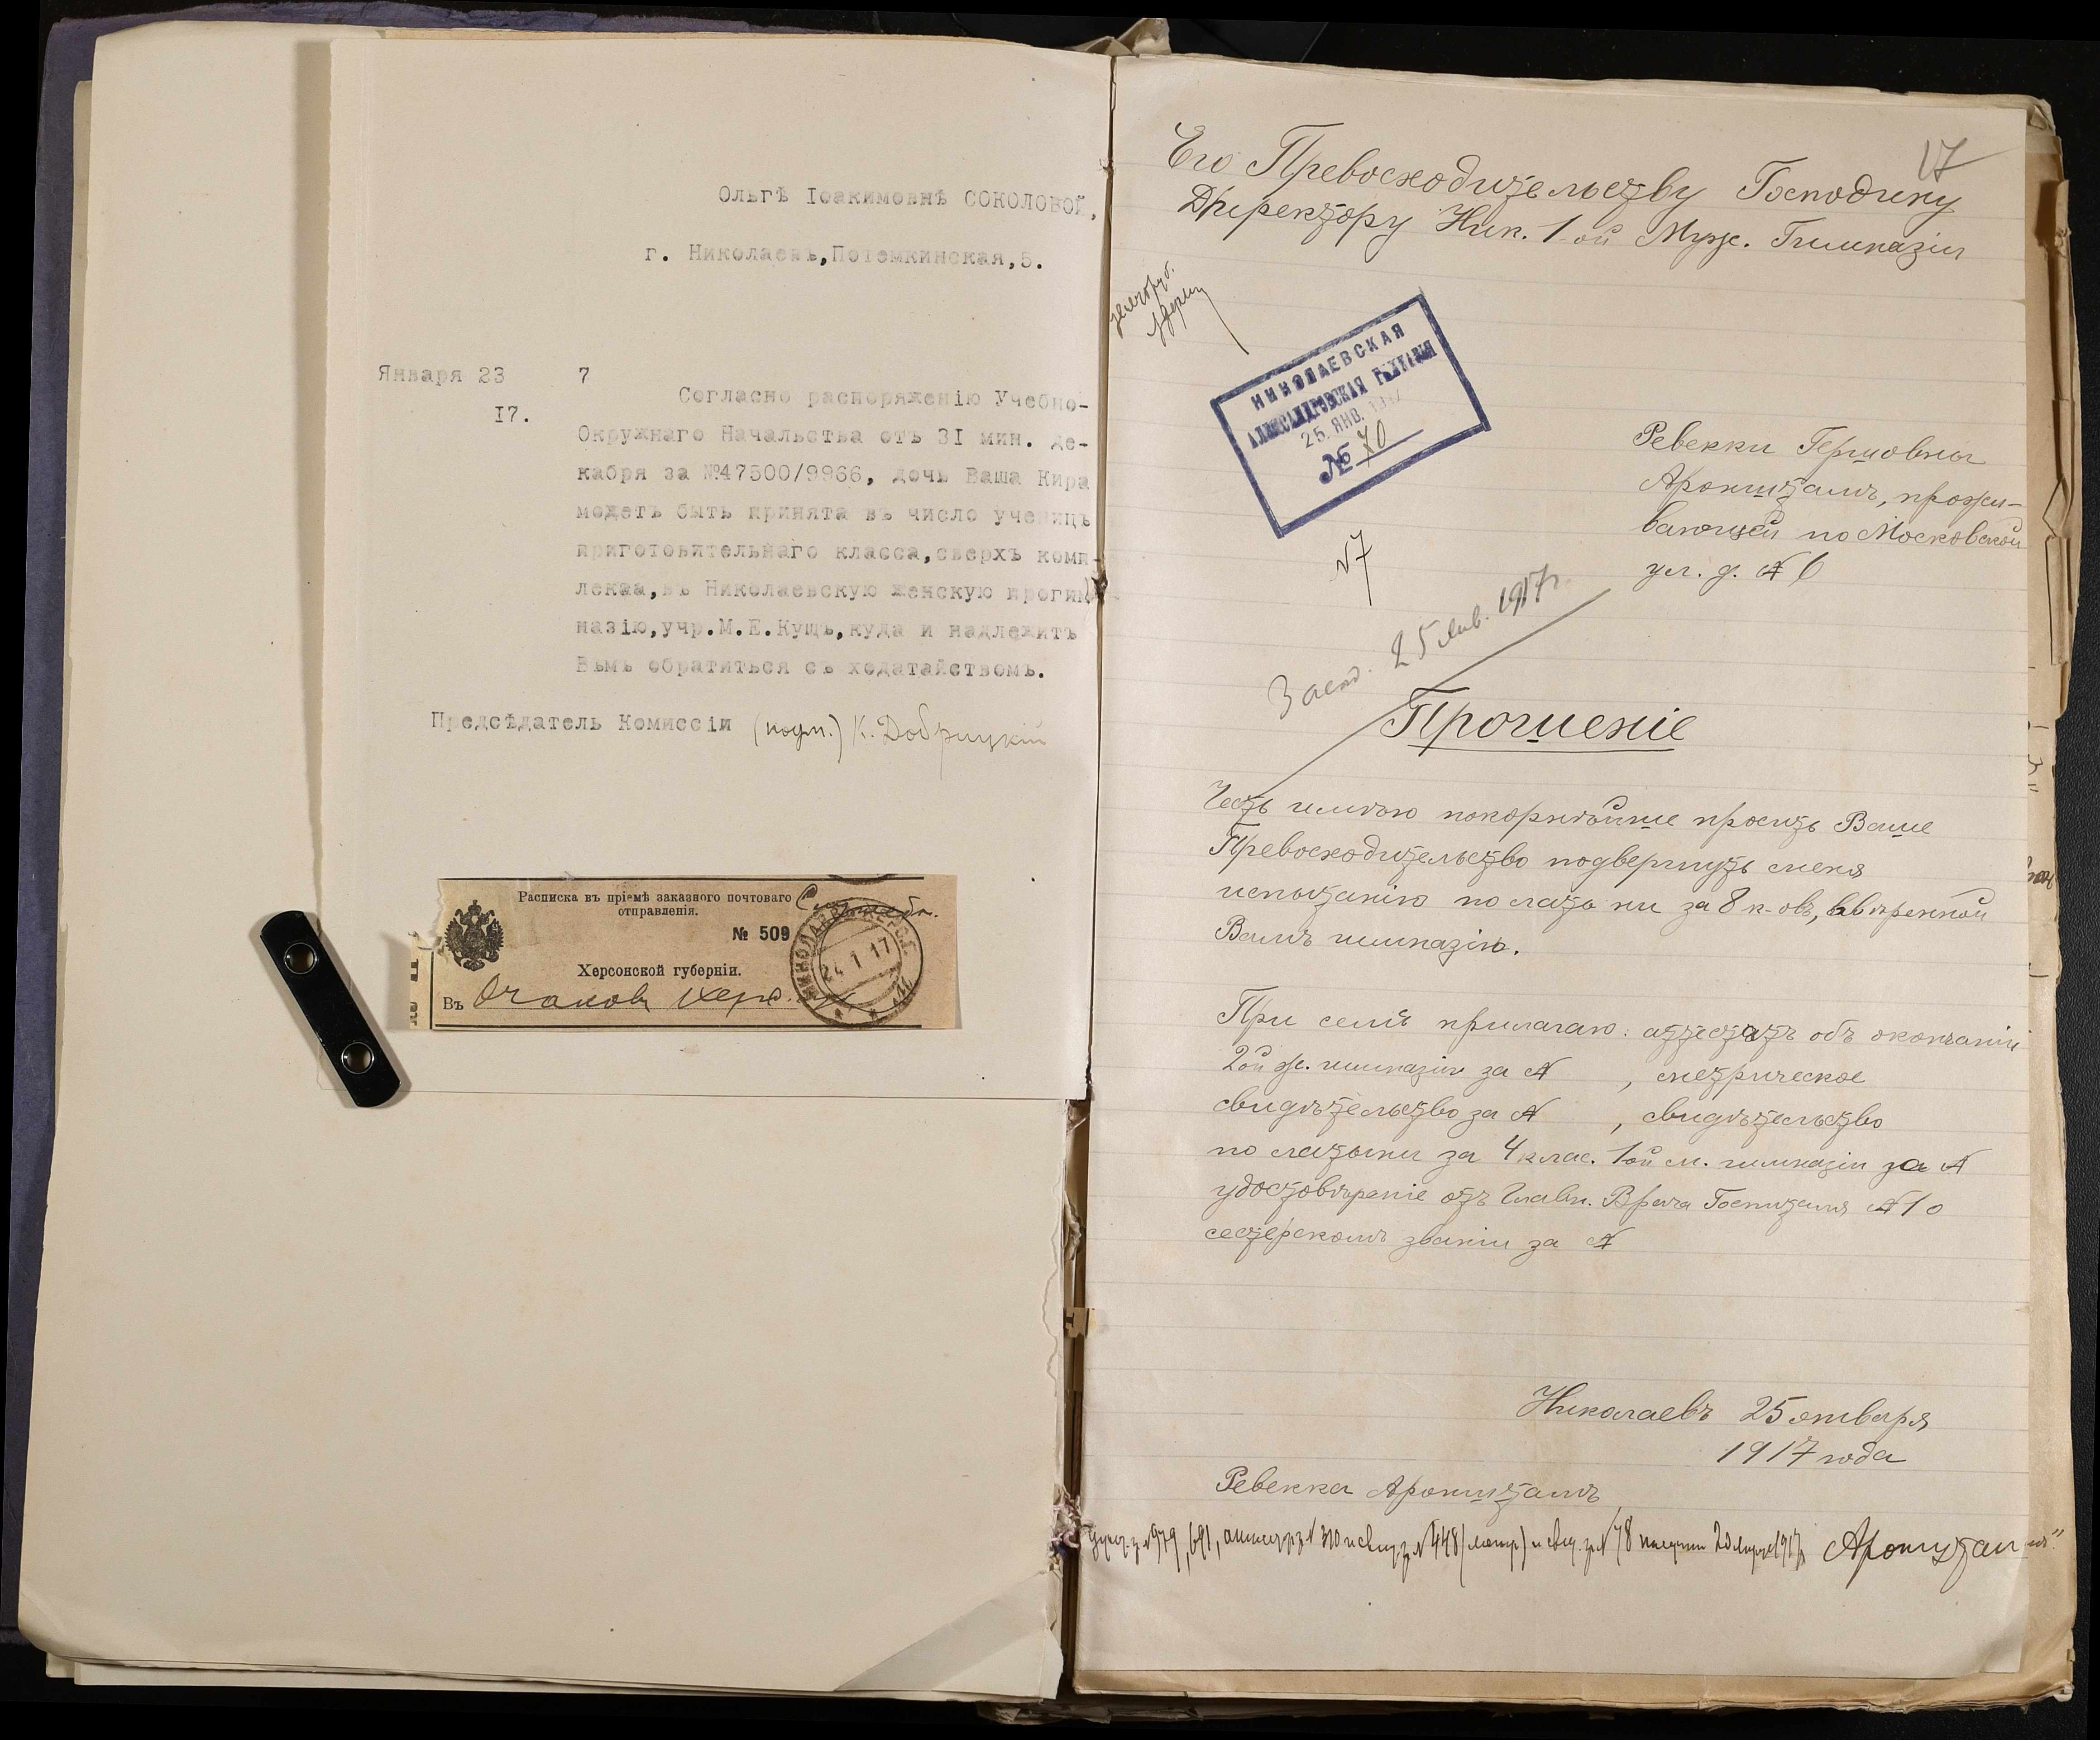 Ольгѣ Іоакимовнѣ СОКОЛОВОЙ,
г. Николаевъ,Потемкинская,5.
Января 23 7
17.
Согласно распоряженію Учебно-
Окружнаго Начальства отъ 31 мин. де-
кабря за №47500/9966, дочь Ваша Кира
можетъ быть принята въ число ученицъ
приготовительнаго класса,сверхъ комп-
лекаа,въ Николаевскую женскую прогим-
назію,учр.М.Е.Кущъ,куда и надлежитъ
Вьмъ обратиться съ ходатайствомъ.
Предсѣдатель Комиссіи (подп.) К. Добрицкій
Расписка въ пріемѣ заказного почтоваго
отправленія.
№ 509
Херсонской губерніи.
Въ Очаковъ Херс.
НИКОЛАЕВЪ
24 1 17
17
Его Превосходительству Господину
Директору Ник. 1-ой Муж. Гимназіи
НИКОЛАЕВСКАЯ
АЛЕКСАНДРОВСКАЯ ГИМНАЗІЯ
25. ЯНВ. 1917
№ 70
Ревекки Гершовны
Аронштамъ, прожи-
вающей по Московской
ул. д. № 6
№7
25 янв. 1917г.
Прошеніе
Честь имѣю покорнѣйше просить Ваше
Превосходительство подвергнуть меня
испытанію по латы ни за 8 к-овъ, ввѣренной
Вамъ гимназіи.
При семъ прилагаю: аттестатъ объ окончаніи
2ой ж. гимназіи за № , метрическое
свидѣтельство за № , свидѣтельство
по латыни за 4 клас. 1ой м. гимназіи за №
удостовѣреніе отъ Главн. Врача Госпиталя №1 о
сестерскомъ званіи за №
Николаевъ 25 января
1917 года
Ревекка Аронштамъ
№979, 691, № 310 и свид. № 448 (метр) и свид. № 78 получил 1917 Аронштамъ